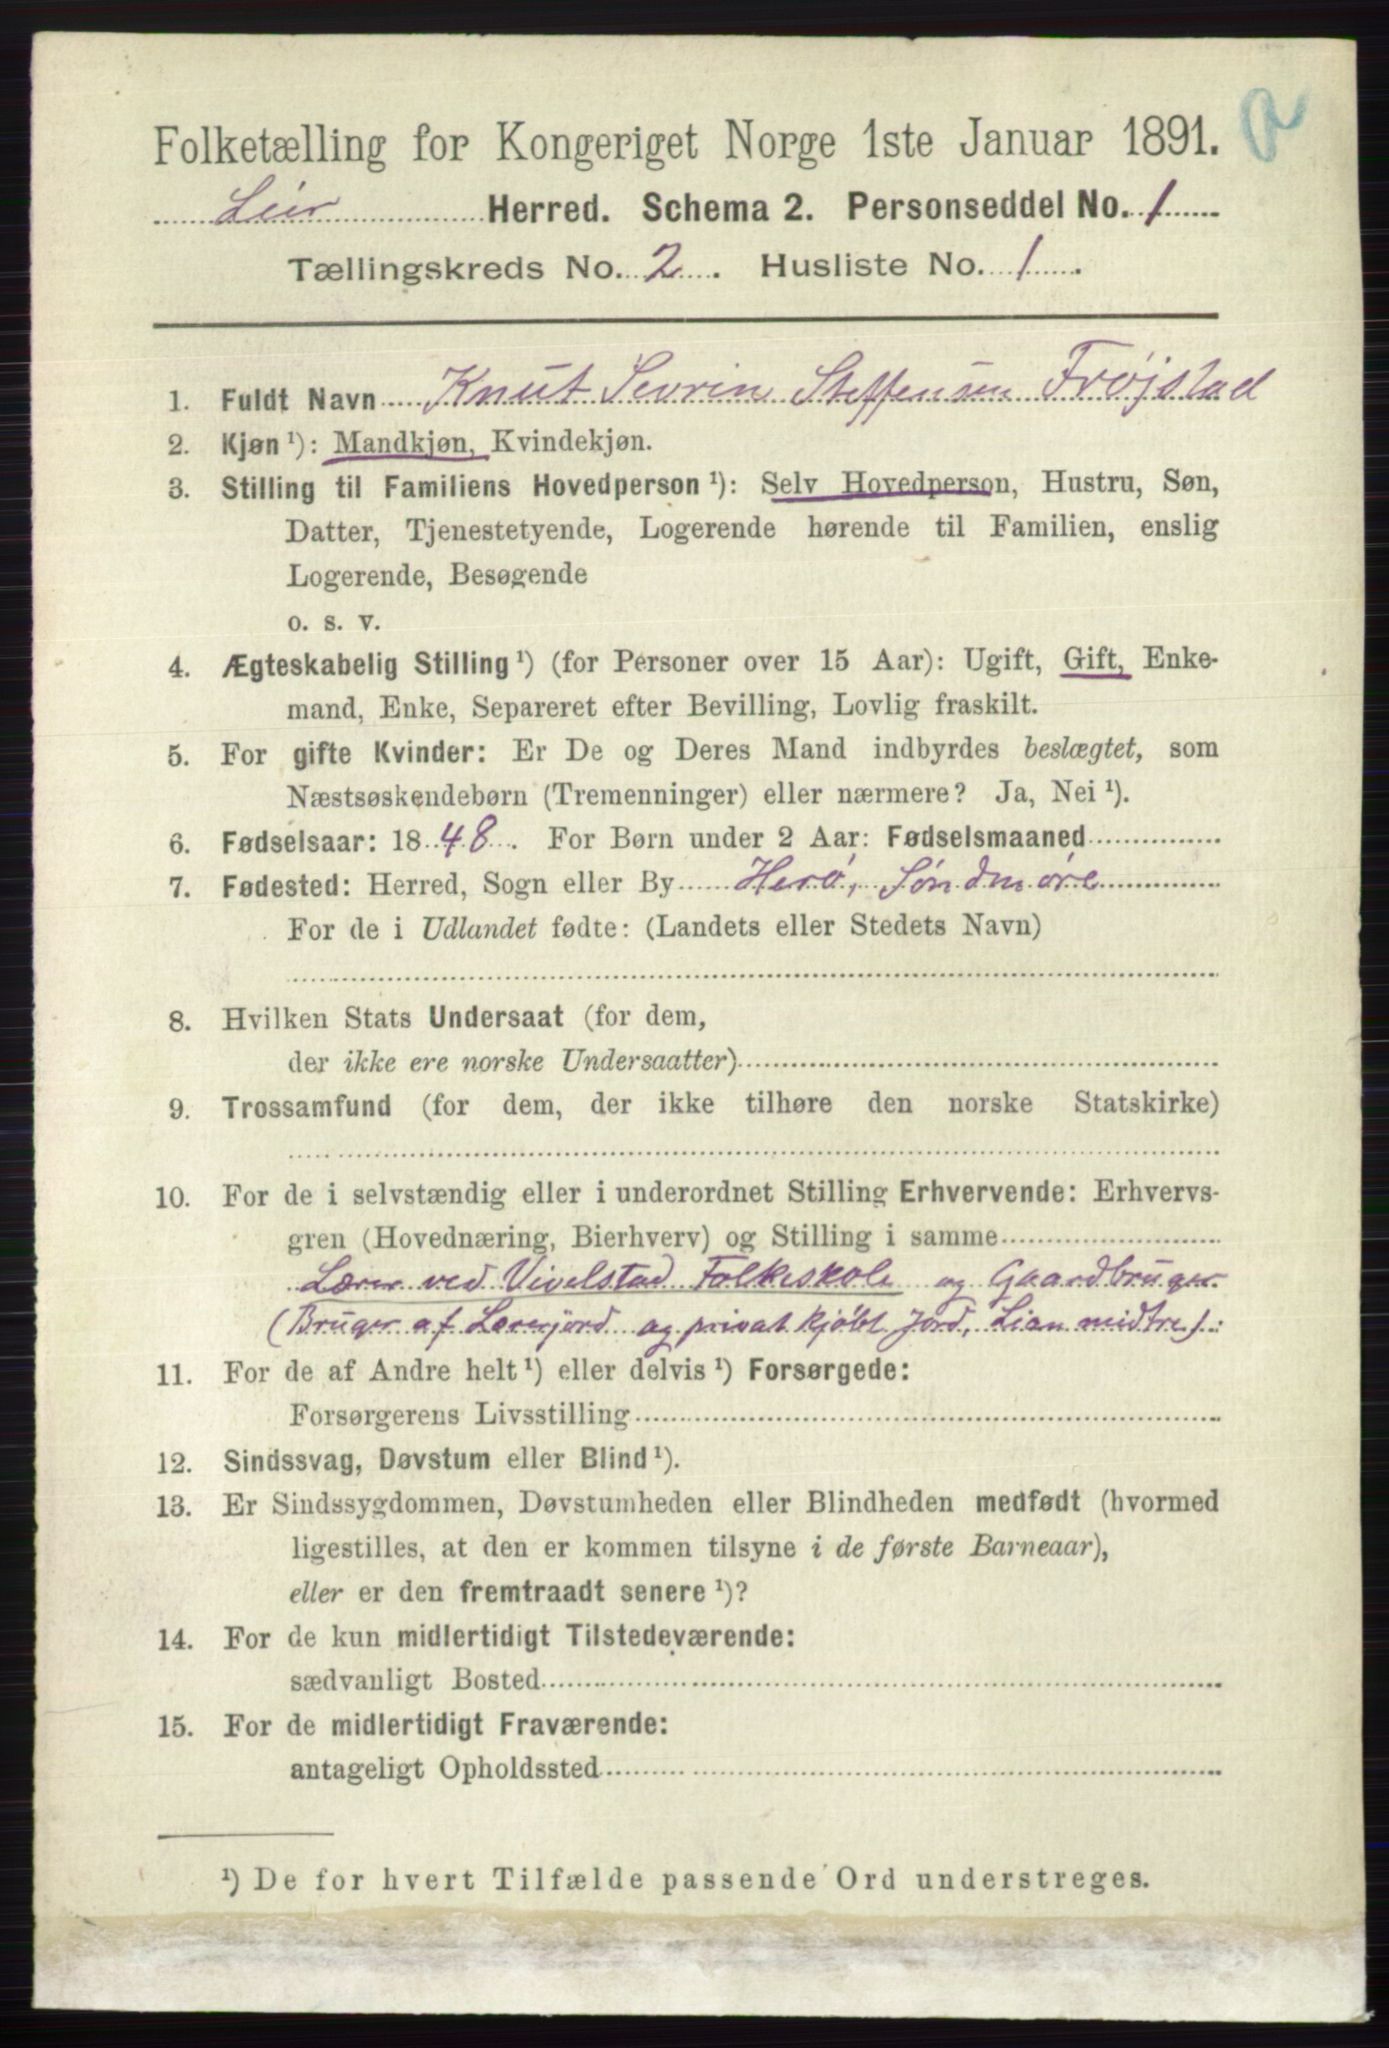 Folketælling for Kongeriget Norge 1ste Januar 1891.
Leir Herred. Schema 2. Personseddel No. 1
Tællingskreds No. 2. Husliste No. 1.
1. Fuldt Navn Knut Sevrin Steffensen Frøjstad
2. Kjøn ¹): Mandkjøn, Kvindekjøn.
3. Stilling til Familiens Hovedperson ¹): Selv Hovedperson, Hustru, Søn,
Datter, Tjenestetyende, Logerende hørende til Familien, enslig
Logerende, Besøgende
o. s. v.
4. Ægteskabelig Stilling ¹) (for Personer over 15 Aar): Ugift, Gift, Enke-
mand, Enke, Separeret efter Bevilling, Lovlig fraskilt.
5. For gifte Kvinder: Er De og Deres Mand indbyrdes beslægtet, som
Næstsøskendebørn (Tremenninger) eller nærmere? Ja, Nei ¹).
6. Fødselsaar: 1848. For Børn under 2 Aar: Fødselsmaaned
7. Fødested: Herred, Sogn eller By Herø, Søndmøre
For de i Udlandet fødte: (Landets eller Stedets Navn)
8. Hvilken Stats Undersaat (for dem,
der ikke ere norske Undersaatter)
9. Trossamfund (for dem, der ikke tilhøre den norske Statskirke)
10. For de i selvstændig eller i underordnet Stilling Erhvervende: Erhvervs-
gren (Hovednæring, Bierhverv) og Stilling i samme
Lærer ved Vivelstad Folkeskole og Gaardbruger
(Bruger af Lærerjord og privat kjøbt Jord, Lian midtre).
11. For de af Andre helt ¹) eller delvis ¹) Forsørgede:
Forsørgerens Livsstilling
12. Sindssvag, Døvstum eller Blind ¹).
13. Er Sindssygdommen, Døvstumheden eller Blindheden medfødt (hvormed
ligestilles, at den er kommen tilsyne i de første Barneaar),
eller er den fremtraadt senere ¹)?
14. For de kun midlertidigt Tilstedeværende:
sædvanligt Bosted
15. For de midlertidigt Fraværende:
antageligt Opholdssted
¹) De for hvert Tilfælde passende Ord understreges.